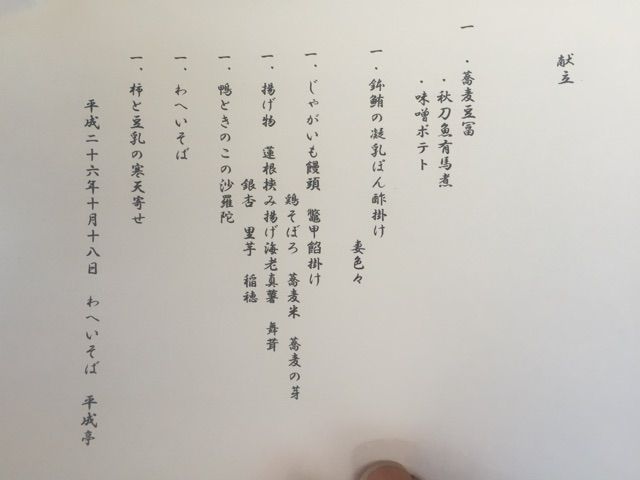 献立
一．蕎麦豆冨
・秋刀魚有馬煮
・味噌ポテト
一．鉾鮪の凝乳ぽん酢掛け
妻色々
一．じゃがいも饅頭 鼈甲餡掛け
鶏そぼろ 蕎麦米 蕎麦の芽
一．揚げ物 蓮根挟み揚げ海老真薯 舞茸
銀杏 里芋 稲穂
一．鴨ときのこの沙羅陀
一．わへいそば
一．柿と豆乳の寒天寄せ
平成二十六年十月十八日 わへいそば 平成亭